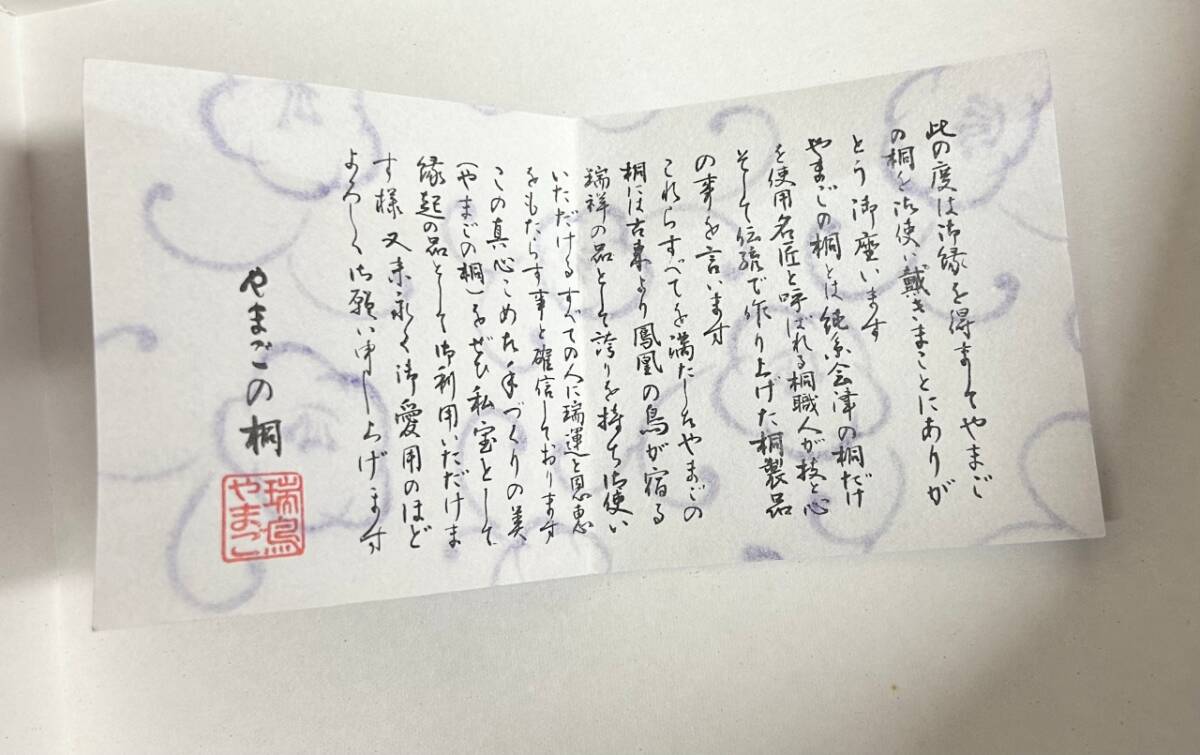 此の度は御縁を得ましてやまご
の桐を御使い戴きまことにありが
とう御座います
やまごの桐とは純系会津の桐だけ
を使用名匠と呼ばれる桐職人が技と心
そして伝統で作り上げた桐製品
の事を言います
これらすべてを満たしたやまごの
桐には古来より鳳凰の鳥が宿る
瑞祥の品として誇りを持ち御使い
いただけるすべての人に瑞運と恩恵
をもたらす事と確信しております
この真心こめた手づくりの美
(やまごの桐)をぜひ私宝として
縁起の品として御利用いただけま
す様又末永く御愛用のほど
よろしく御願い申し上げます
やまごの桐
瑞鳥
やまご